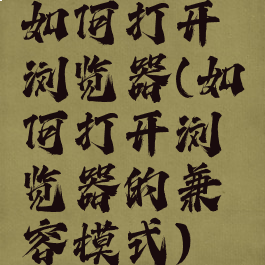 如何打开
浏览器(如
何打开浏
览器的兼
容模式)